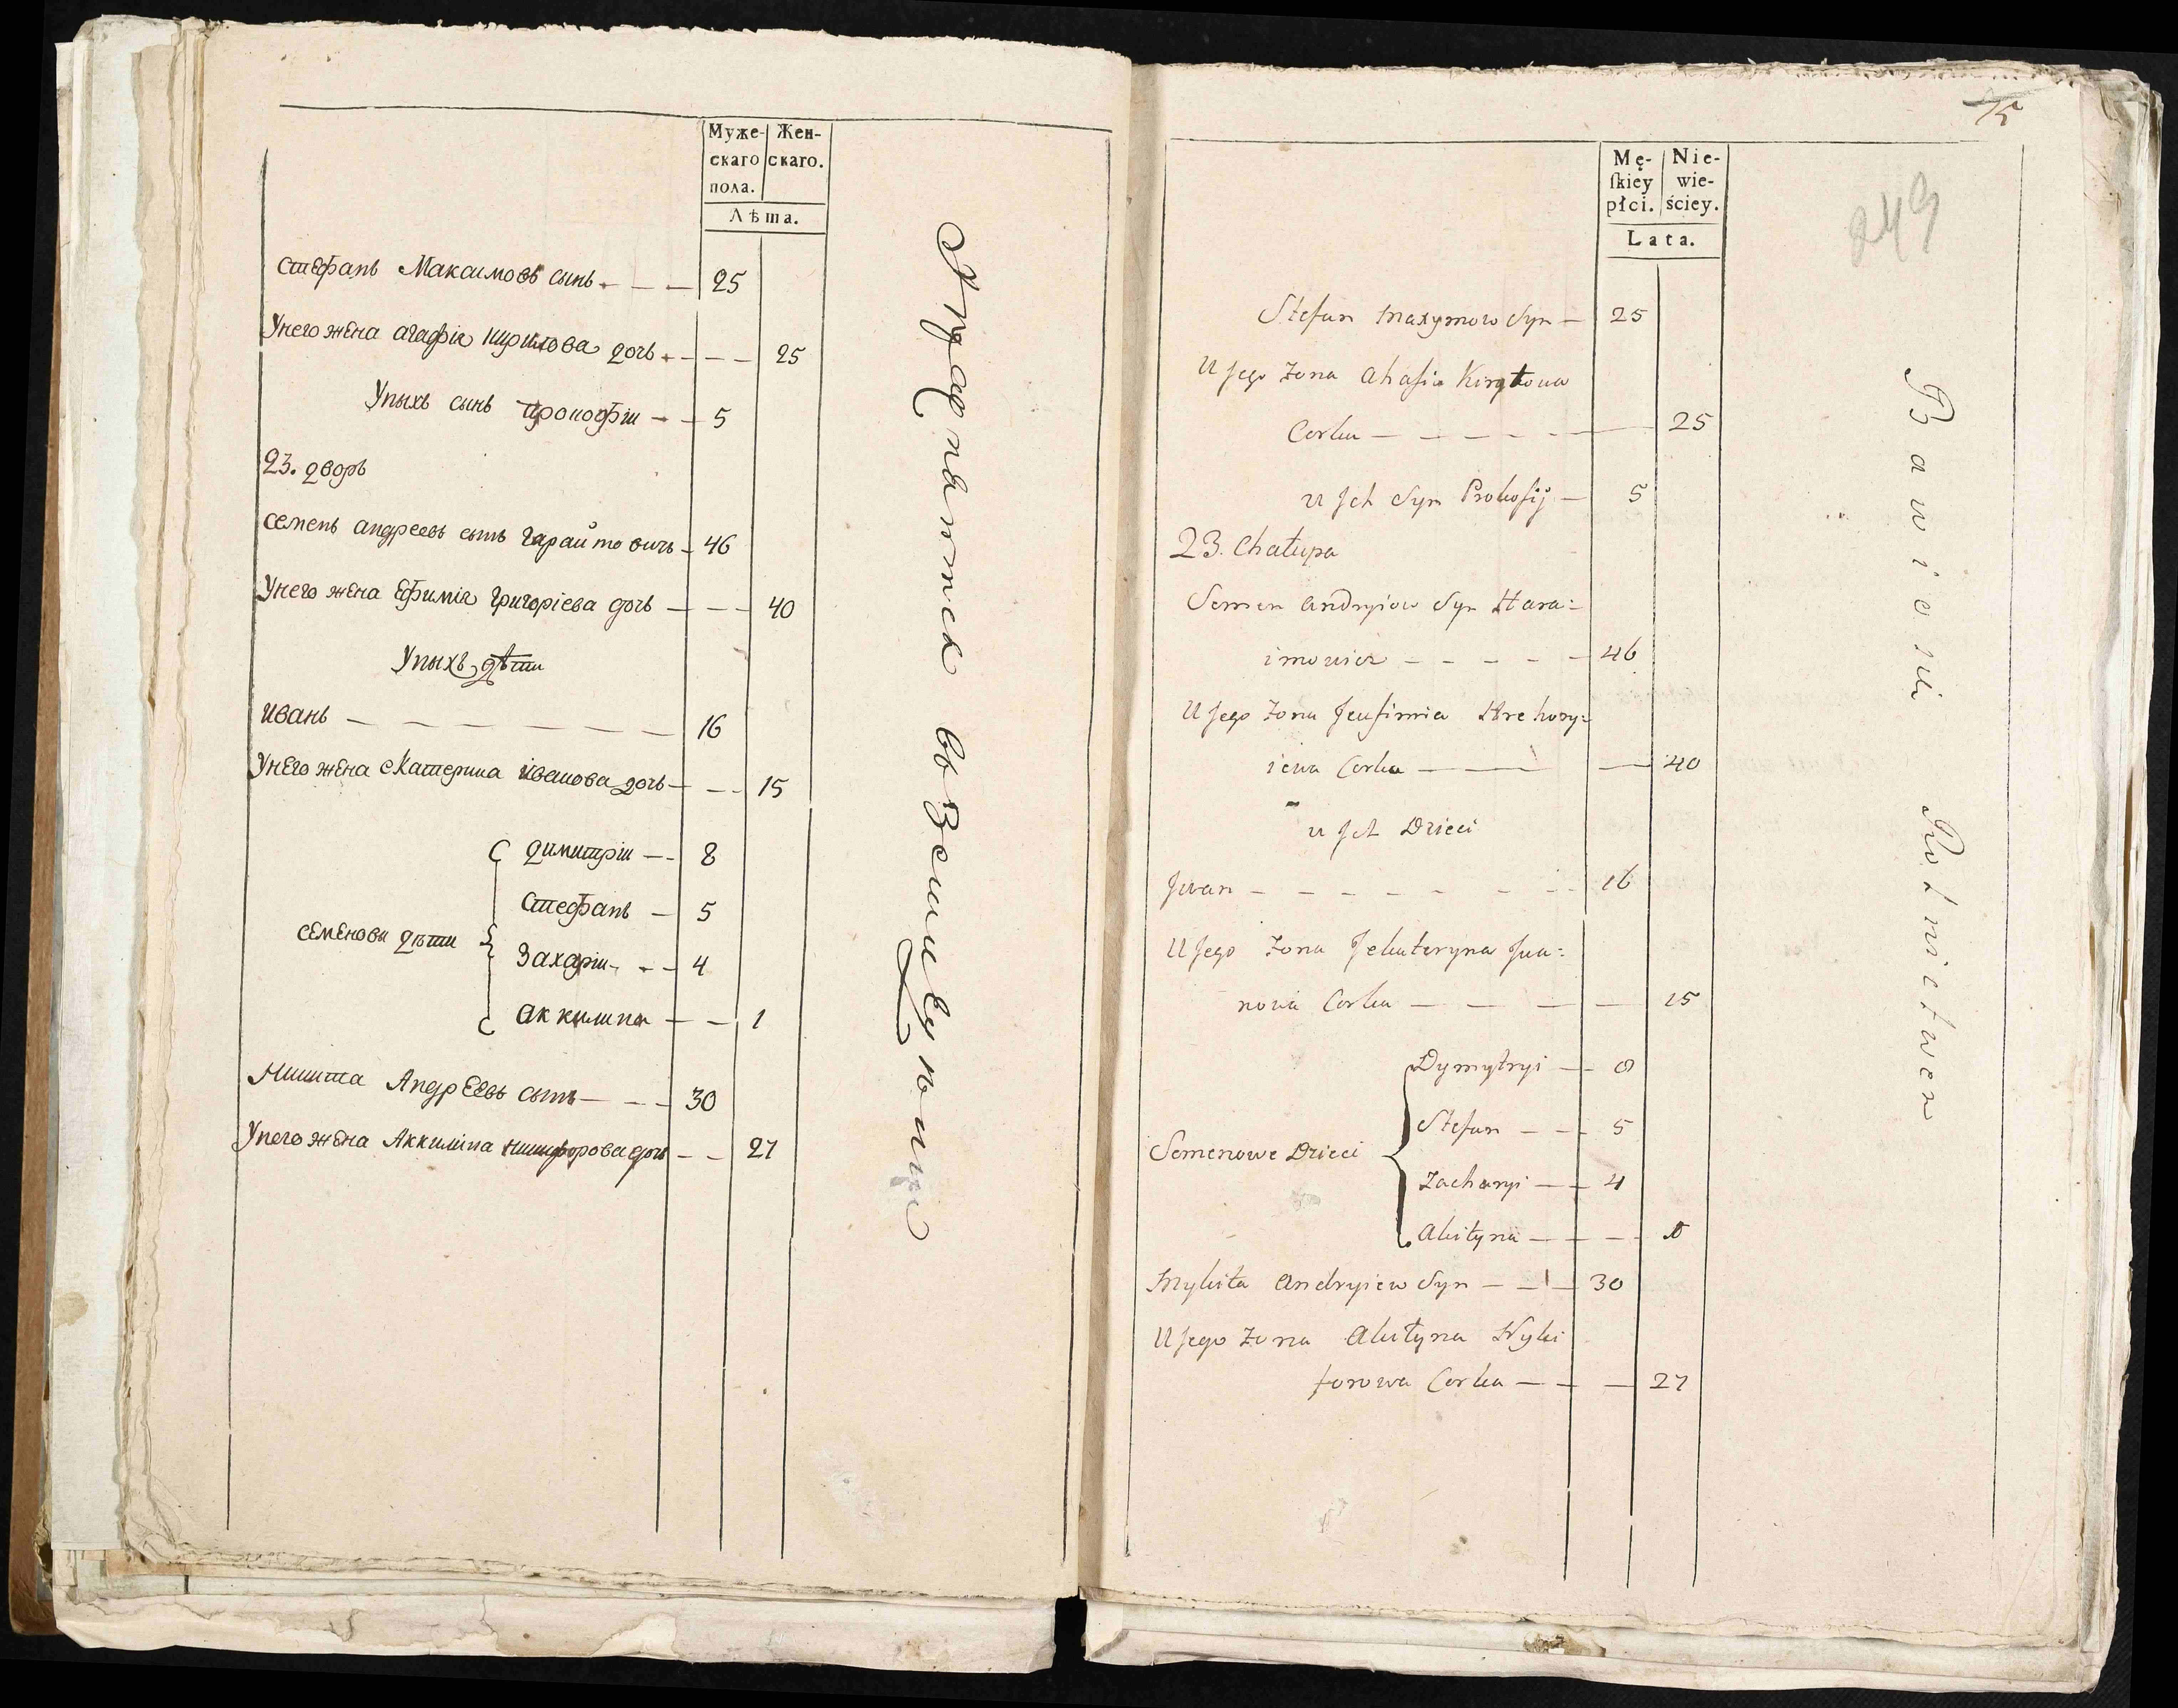 Муже- Жен-
скаго скаго.
пола.
Лѣта.
Стефанъ Максимовъ сынъ - - - 25
Унего жена агафіа кирилова дочь - - - 25
Уныхъ сынъ Прокофіи - - 5
23. дворъ
Семенъ андреевъ сынъ Гараймовичъ - 46
Унего жена Ефиміа григоріева дочь - - - 40
Уныхъ дѣти
иванъ - - - - - - - 16
Унего жена екатерина иванова дочь - - - 15
димитріи - - 8
Стефанъ - 5
семеновы дѣти
Захаріи - - - 4
аккилина - - 1
Никита Андреевъ сынъ - - - 30
Унего жена Аккилина никифорова дочь - - 27
Упражняется въ Земли
75
249
Mę- Nie-
ſkiey wie-
płci. ściey.
Lata.
Stefan Maxymow Syn - 25
U Jego Żona Ahafia Kiryłowa
Corka - - - - - - 25
u Jch Syn Prokofij - 5
23. Chałupa
Semen Andryiow Syn Hara=
imowicz - - - - - 46
U Jego Żona Jeufimia Hrehory=
iewa Corka - - - 40
u Jch Dzieci
Jwan - - - - - - - 16
U Jego Żona Jekateryna Jwa=
nowa Corka - - - - 15
Dymytryi - - 8
Stefan - - - 5
Semenowe Dzieci
Zacharyi - - 4
Akiłyna - - - -
Mykita Andryiew Syn - - - 30
U Jego Żona Akiłyna Nyki
forowa Corka - - - 27
Bawi się Rolnictwem